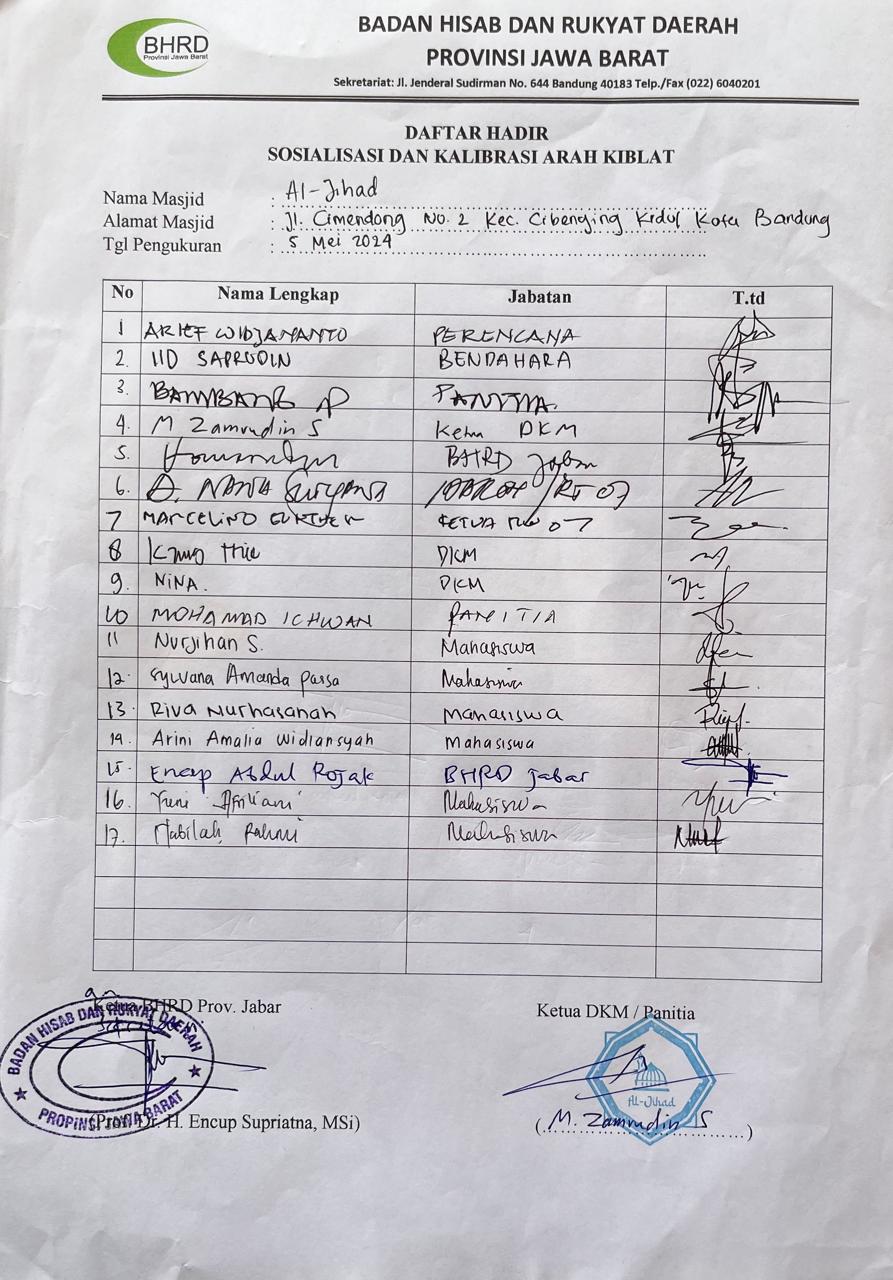 BHRD
Provinsi Jawa Barat
BADAN HISAB DAN RUKYAT DAERAH
PROVINSI JAWA BARAT
Sekretariat: Jl. Jenderal Sudirman No. 644 Bandung 40183 Telp./Fax (022) 6040201
DAFTAR HADIR
SOSIALISASI DAN KALIBRASI ARAH KIBLAT
Nama Masjid : Al-Jihad
Alamat Masjid : Jl. Cimendong No. 2 Kec. Cibenying Kidul Kota Bandung
Tgl Pengukuran : 5 Mei 2024
No Nama Lengkap Jabatan T.td
1 ARIEF WIDJANANTO PERENCANA
2. IID SAPRUDIN BENDAHARA
3. BAMBANG P PANITIA
4. M Zamrudin S Ketua DKM
5. BHRD Jabar
6. NANA Suryana RT 07
7 MARCELINO KETUA RW 07
8 DKM
9. NINA. DKM
10 MOHAMAD ICHWAN PANITIA
11 Nurjihan S. Mahasiswa
12. Sylvana Amanda Parsa Mahasiswa
13. Riva Nurhasanah Mahasiswa
14. Arini Amalia Widiansyah Mahasiswa
15. Encep Abdul Rojak BHRD Jabar
16. Yuni Apriliani Mahasiswa
17. Nabilah Rahmi Mahasiswa
an
Ketua BHRD Prov. Jabar
Ketua DKM / Panitia
BADAN HISAB DAN RUKYAT DAERAH
PROPINSI JAWA BARAT
Al-Jihad
(Prof. Dr. H. Encup Supriatna, MSi)
(M. Zamrudin S)